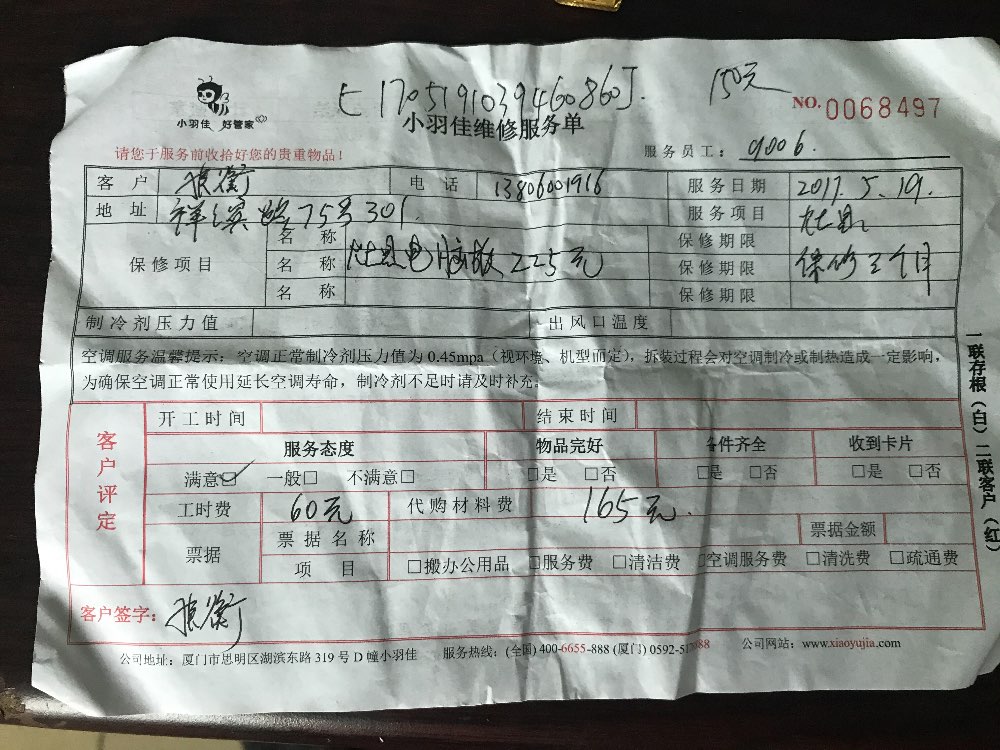 E170519103946086OJ. 150元
小羽佳 好管家 小羽佳维修服务单 NO. 0068497
请您于服务前收拾好您的贵重物品！ 服务员工： 9006.
客 户 电 话 13806001916 服务日期 2017.5.19.
地 址 祥滨路75号301. 服务项目 灶具
保修项目 名 称 保修期限
名 称 灶具电脑板225元 保修期限 保修三个月
名 称 保修期限
制冷剂压力值 出风口温度
空调服务温馨提示：空调正常制冷剂压力值为 0.45mpa（视环境、机型而定），拆装过程会对空调制冷或制热造成一定影响，
为确保空调正常使用延长空调寿命，制冷剂不足时请及时补充。
客户评定 开工时间 结束时间
服务态度 物品完好 备件齐全 收到卡片
满意☑ 一般□ 不满意□ □是 □否 □是 □否 □是 □否
工时费 60元 代购材料费 165元.
票据 票据名称 票据金额
项 目 □搬办公用品 □服务费 □清洁费 □空调服务费 □清洗费 □疏通费
客户签字：
公司地址：厦门市思明区湖滨东路 319 号 D 幢小羽佳 服务热线：(全国) 400-6655-888 (厦门) 0592-5 公司网站：www.xiaoyujia.com
一联存根（白）二联客户（红）